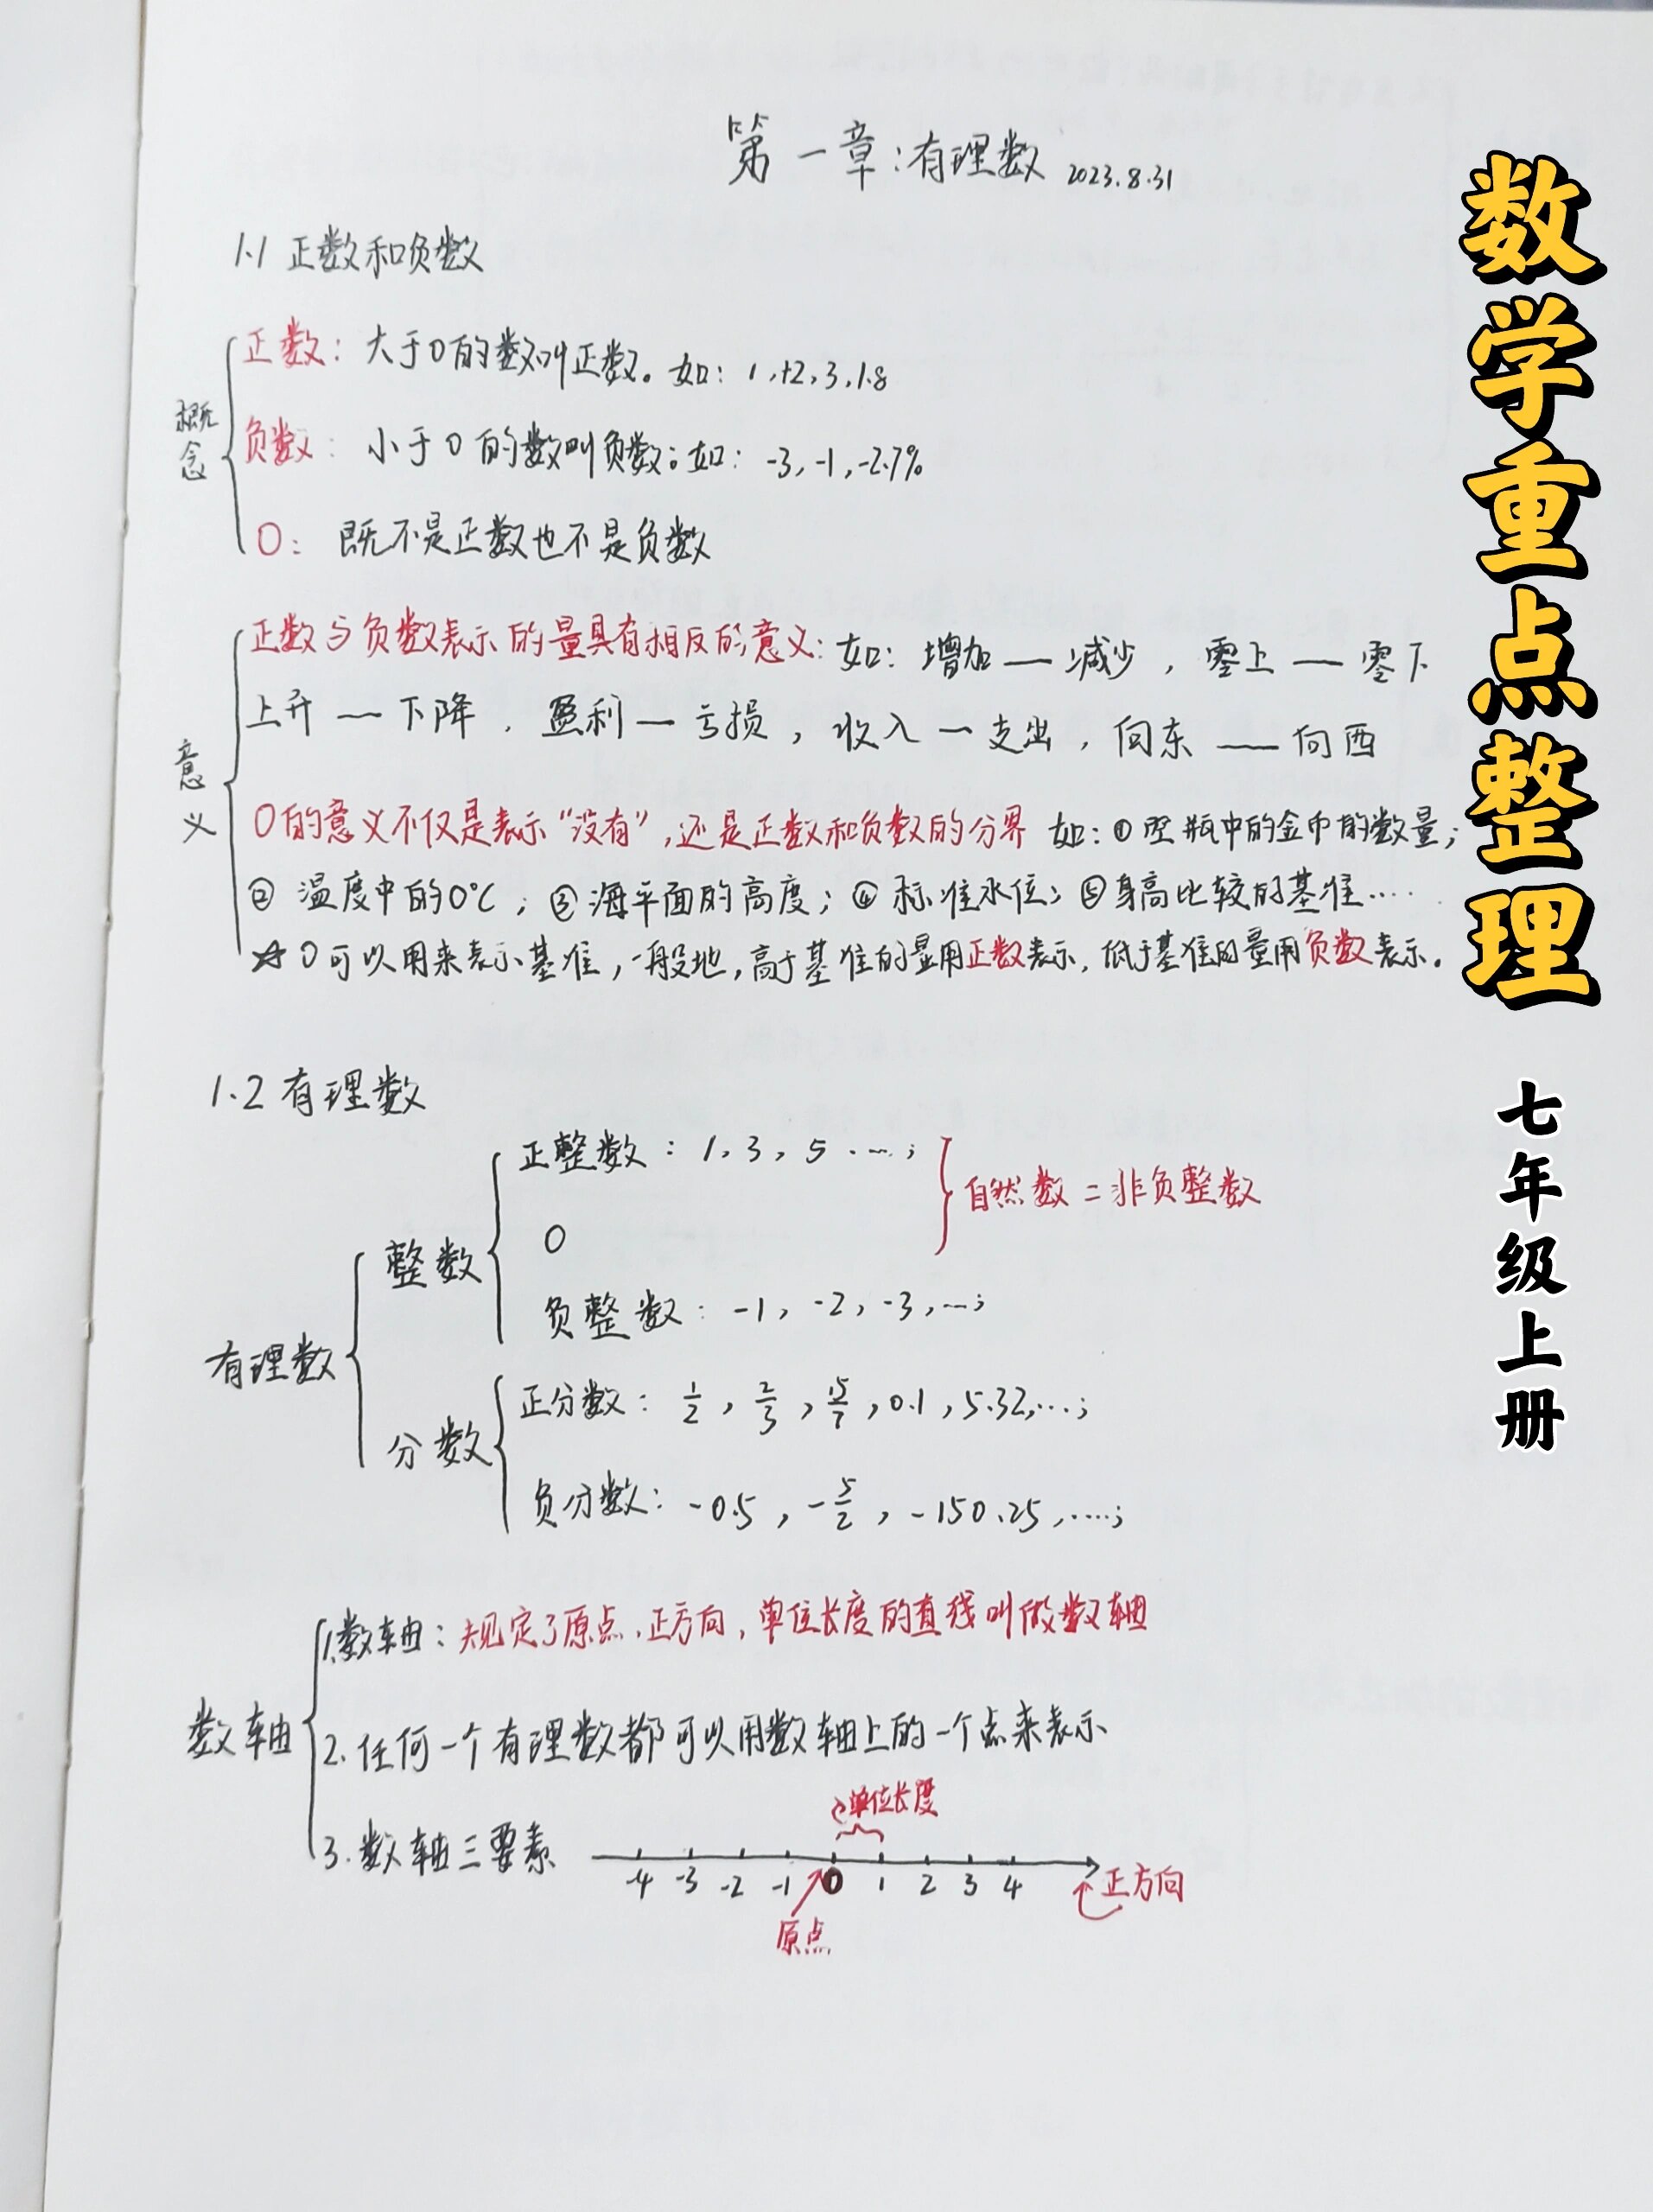 第一章:有理数 2023.8.31
1.1 正数和负数
概念
正数: 大于0的数叫正数。如: 1,+2,3,1.8
负数: 小于0的数叫负数。如: -3,-1,-2.7%
0: 既不是正数也不是负数
意义
正数与负数表示的量具有相反的意义: 如: 增加—减少, 零上—零下
上升—下降, 盈利—亏损, 收入—支出, 向东—向西
0的意义不仅是表示“没有”,还是正数和负数的分界 如:①空瓶中的金币的数量;
②温度中的0℃;③海平面的高度;④标准水位;⑤身高比较的基准……
☆0可以用来表示基准,一般地,高于基准的量用正数表示,低于基准的量用负数表示。
1.2 有理数
有理数
整数
正整数: 1,3,5…;
0
自然数=非负整数
负整数: -1,-2,-3,…;
分数
正分数: 1/2, 2/3, 15/7, 0.1, 5.32,…;
负分数: -0.5, -5/2, -150.25,…;
数轴
1.数轴: 规定了原点,正方向,单位长度的直线叫做数轴
2.任何一个有理数都可以用数轴上的一个点来表示
3.数轴三要素
单位长度
-4 -3 -2 -1 0 1 2 3 4
正方向
原点
数学重点整理
七年级上册